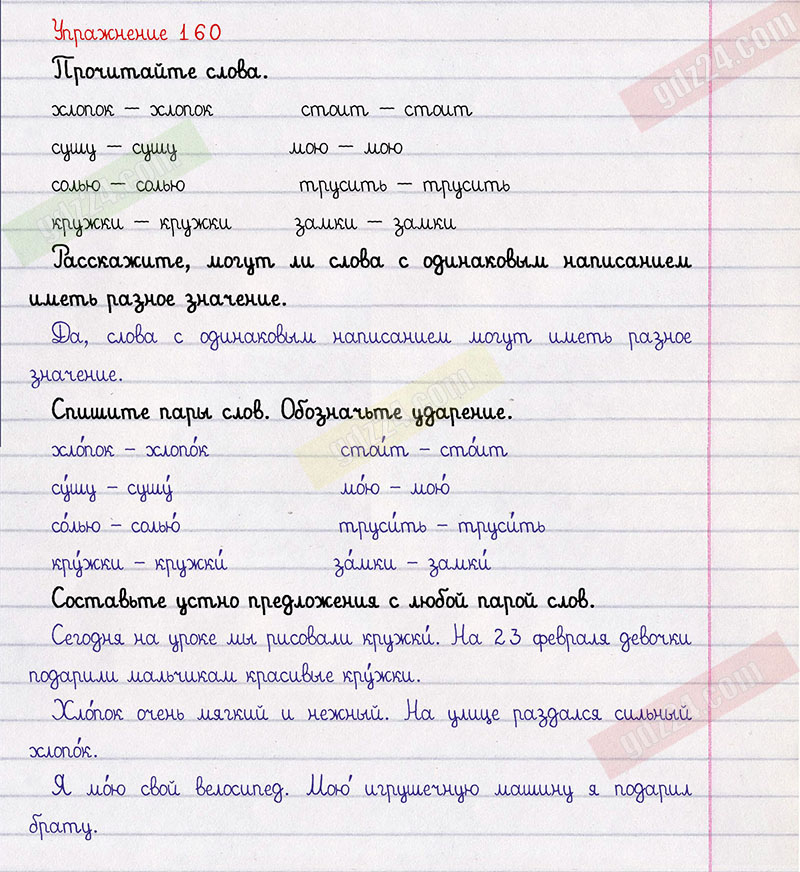 Упражнение 160
Прочитайте слова.
хлопок – хлопок стоит – стоит
сушу – сушу мою – мою
солью – солью трусить – трусить
кружки – кружки замки – замки
Расскажите, могут ли слова с одинаковым написанием
иметь разное значение.
Да, слова с одинаковым написанием могут иметь разное
значение.
Спишите пары слов. Обозначьте ударение.
хло́пок – хлопо́к стои́т – сто́ит
су́шу – сушу́ мо́ю – мою́
со́лью – солью́ труси́ть – труси́ть
кру́жки – кружки́ за́мки – замки́
Составьте устно предложения с любой парой слов.
Сегодня на уроке мы рисовали кружки́. На 23 февраля девочки
подарили мальчикам красивые кру́жки.
Хло́пок очень мягкий и нежный. На улице раздался сильный
хлопо́к.
Я мо́ю свой велосипед. Мою́ игрушечную машину я подарил
брату.
gdz24.com
gdz24.com
gdz24.com
gdz24.com